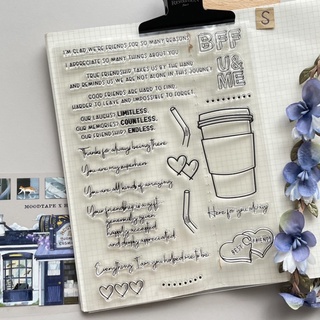 I'M GLAD WE'RE FRIENDS FOR SO MANY REASONS
I APPRECIATE SO MANY THINGS ABOUT YOU
TRUE FRIENDSHIP TAKES US BY THE HAND
AND REMINDS US WE ARE NOT ALONE IN THIS JOURNEY
GOOD FRIENDS ARE HARD TO FIND,
HARDER TO LEAVE AND IMPOSSIBLE TO FORGET.
OUR LAUGHS LIMITLESS.
OUR MEMORIES COUNTLESS.
OUR FRIENDSHIP ENDLESS.
Thanks for always being here
You are my superhero
You are all kinds of amazing
Your friendship is a gift
generously given
happily accepted
and deeply appreciated
Everything I am you helped me to be
BFF
U&
ME
Here for you always
BEST FRIENDS
S
MOODTAPE X